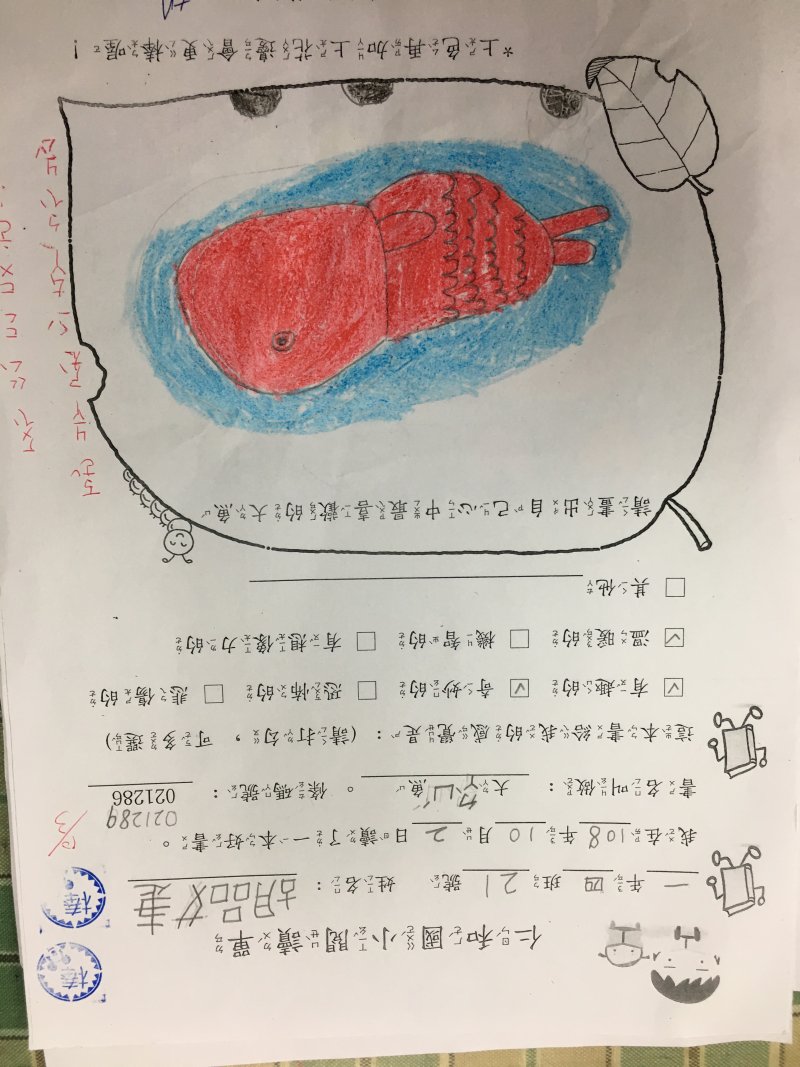 仁和國小閱讀單
一年四班21號 姓名：胡品
棒
棒
我在108年10月2日讀了一本好書。
10/3
021289
書名叫做：大魚。條碼號：021286
這本書給我的感覺是：(請打勾，可多選)
☑有趣的 ☑奇妙的 □恐怖的 □悲傷的
☑溫暖的 □機智的 □有想像力的
□其他
請畫出自己心中最喜歡的大魚
*上色再加上花邊會更棒喔！